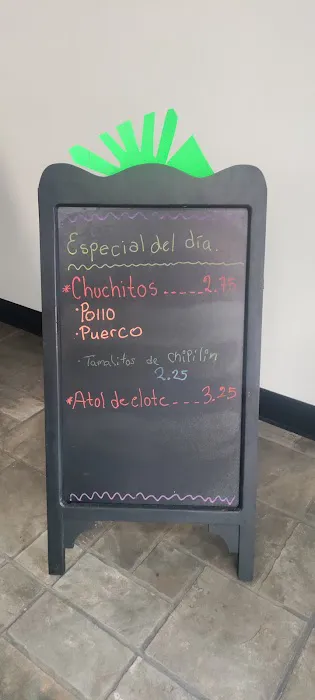 Especial del día.
*Chuchitos_____2.75
·Pollo
·Puerco
·Tamalitos de chipilin
2.25
*Atol de elote___3.25